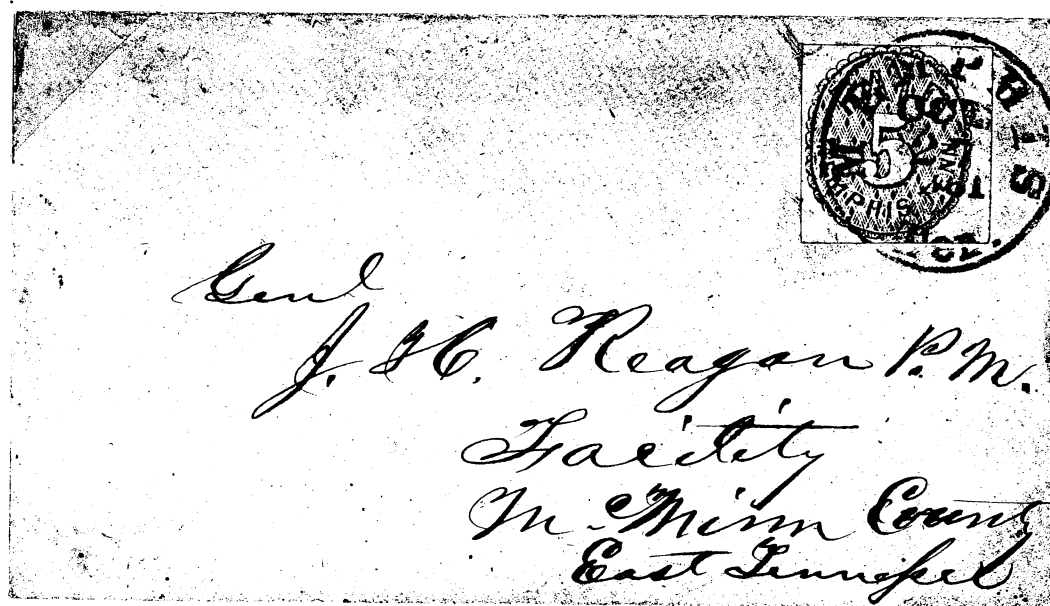 MEMPHIS
5
MPHIS TENN
Genl
J. H. Reagan P. M.
Facility
Mc.Minn County
East Tennessee